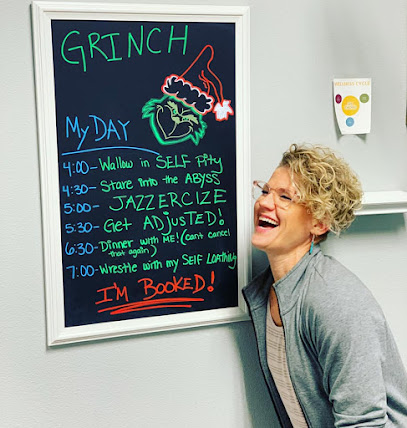 GRINCH
MY DAY
4:00-Wallow in SELF Pity
4:30-Stare into the ABYSS
5:00-JAZZERCIZE
5:30-Get ADJUSTED!
6:30-Dinner with ME! (can't cancel
that again)
7:00-Wrestle with my SELF LOATHING
I'M BOOKED!